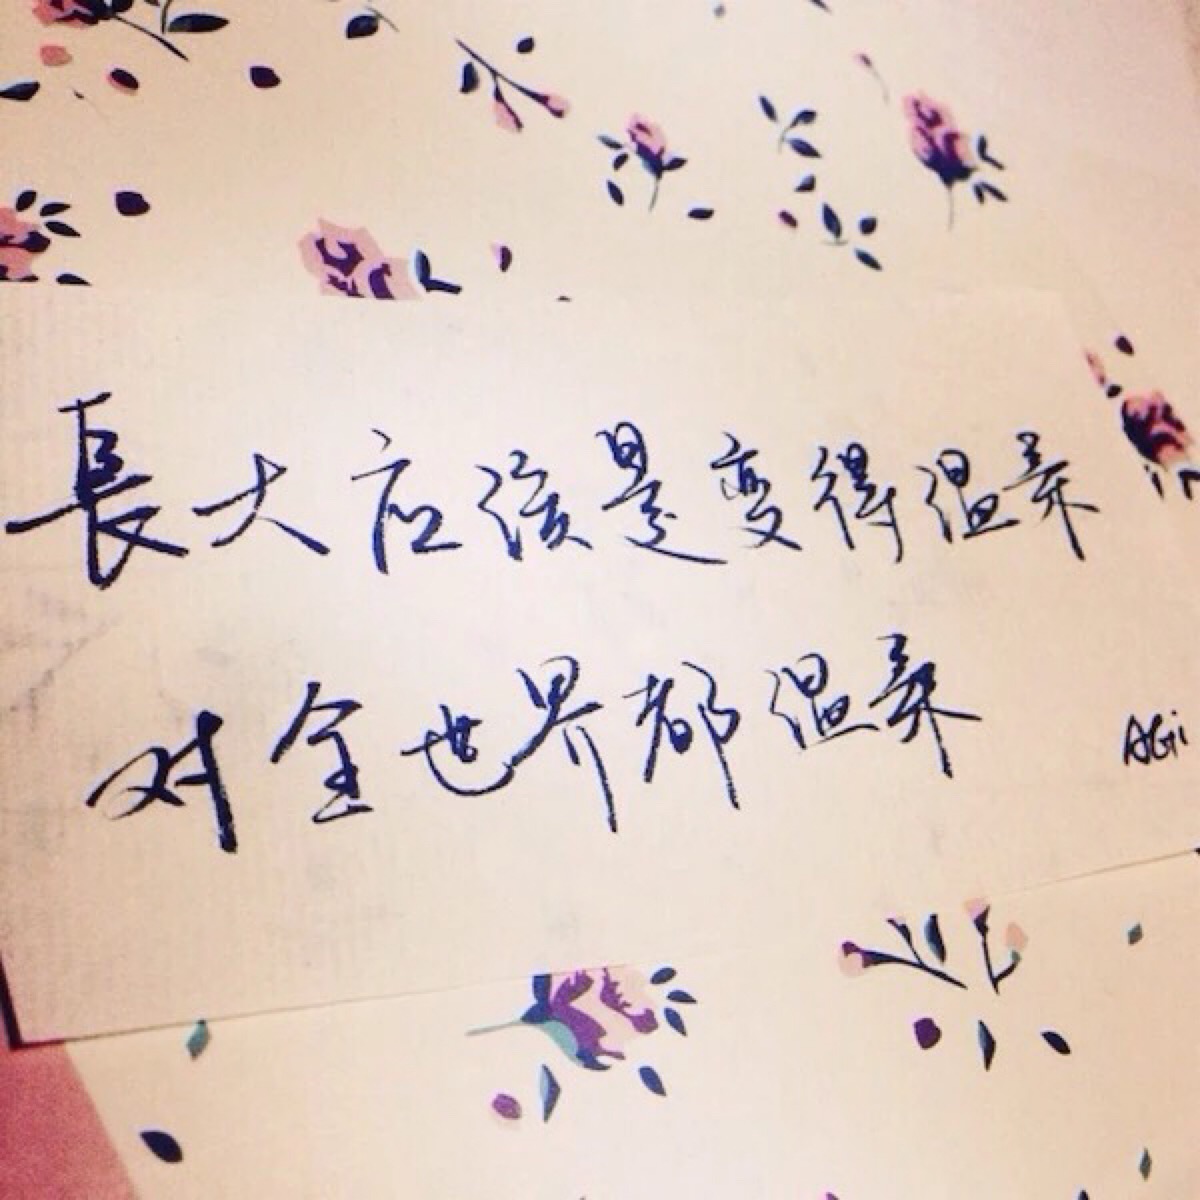 長大应该是变得温柔
对全世界都温柔
AGi